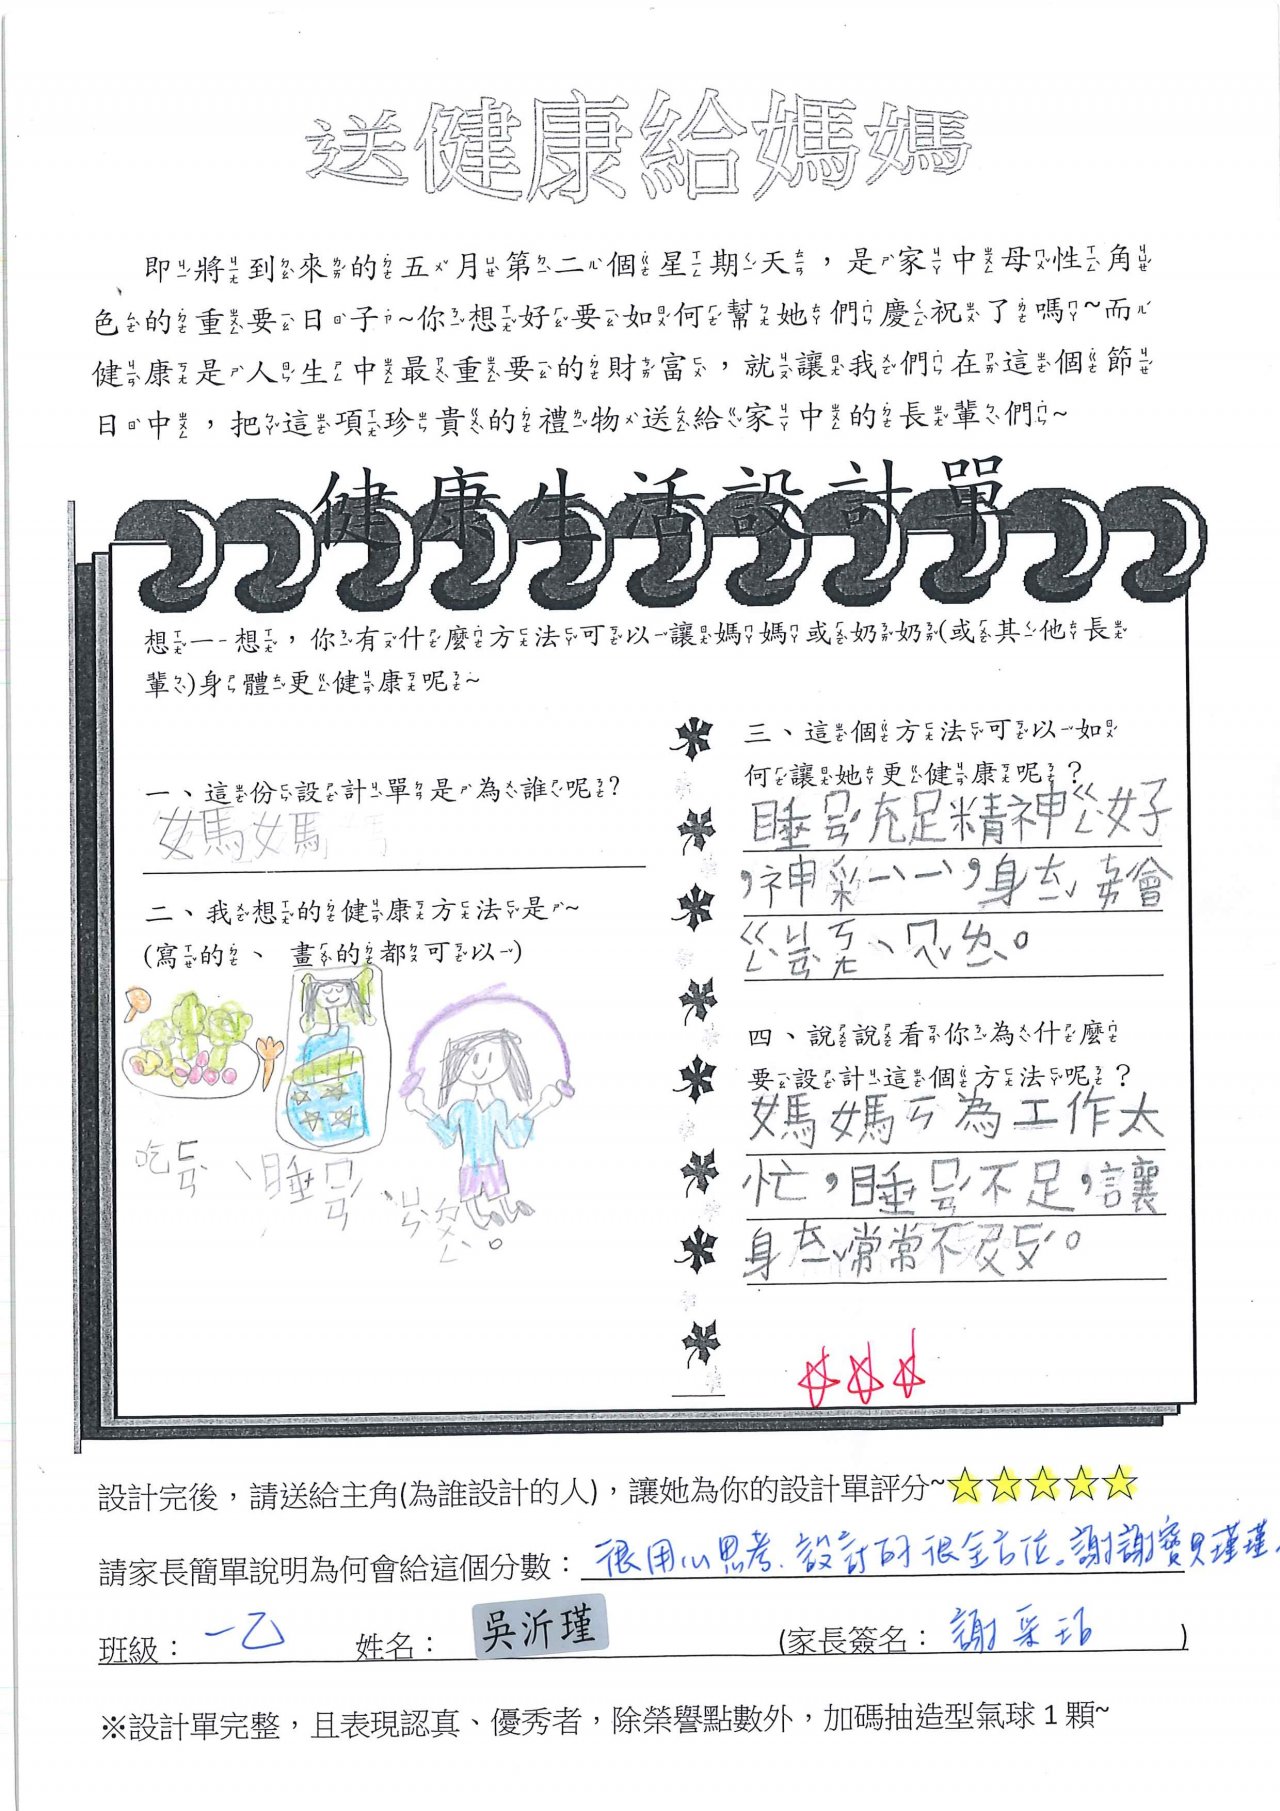 送健康給媽媽
即將到來的五月第二個星期天，是家中母性角
色的重要日子~你想好要如何幫她們慶祝了嗎~而
健康是人生中最重要的財富，就讓我們在這個節
日中，把這項珍貴的禮物送給家中的長輩們~
健康生活設計單
想一想，你有什麼方法可以讓媽媽或奶奶(或其他長
輩)身體更健康呢~
一、這份設計單是為誰呢?
媽媽
二、我想的健康方法是~
(寫的、畫的都可以)
吃ㄈㄢˋ、睡ㄇㄧㄢˊ、
三、這個方法可以如
何讓她更健康呢?
睡ㄇㄧㄢˊ充足精神ㄍㄥˋ好
，神彩ㄧˋㄧˋ，身ㄊㄧˇ會
ㄍㄥˋㄐㄧㄢˋㄎㄤ、
四、說說看你為什麼
要設計這個方法呢?
媽媽ㄧㄣ為工作太
忙，睡ㄇㄧㄢˊ不足，讓
身ㄊㄧˇ常常不ㄕㄨㄈㄨˊ。
設計完後，請送給主角(為誰設計的人)，讓她為你的設計單評分~☆☆☆☆☆
請家長簡單說明為何會給這個分數：很用心思考、設計的很全方位。謝謝寶貝瑾瑾。
班級：一乙 姓名：吳沂瑾 (家長簽名：謝采玿)
※設計單完整，且表現認真、優秀者，除榮譽點數外，加碼抽造型氣球1顆~